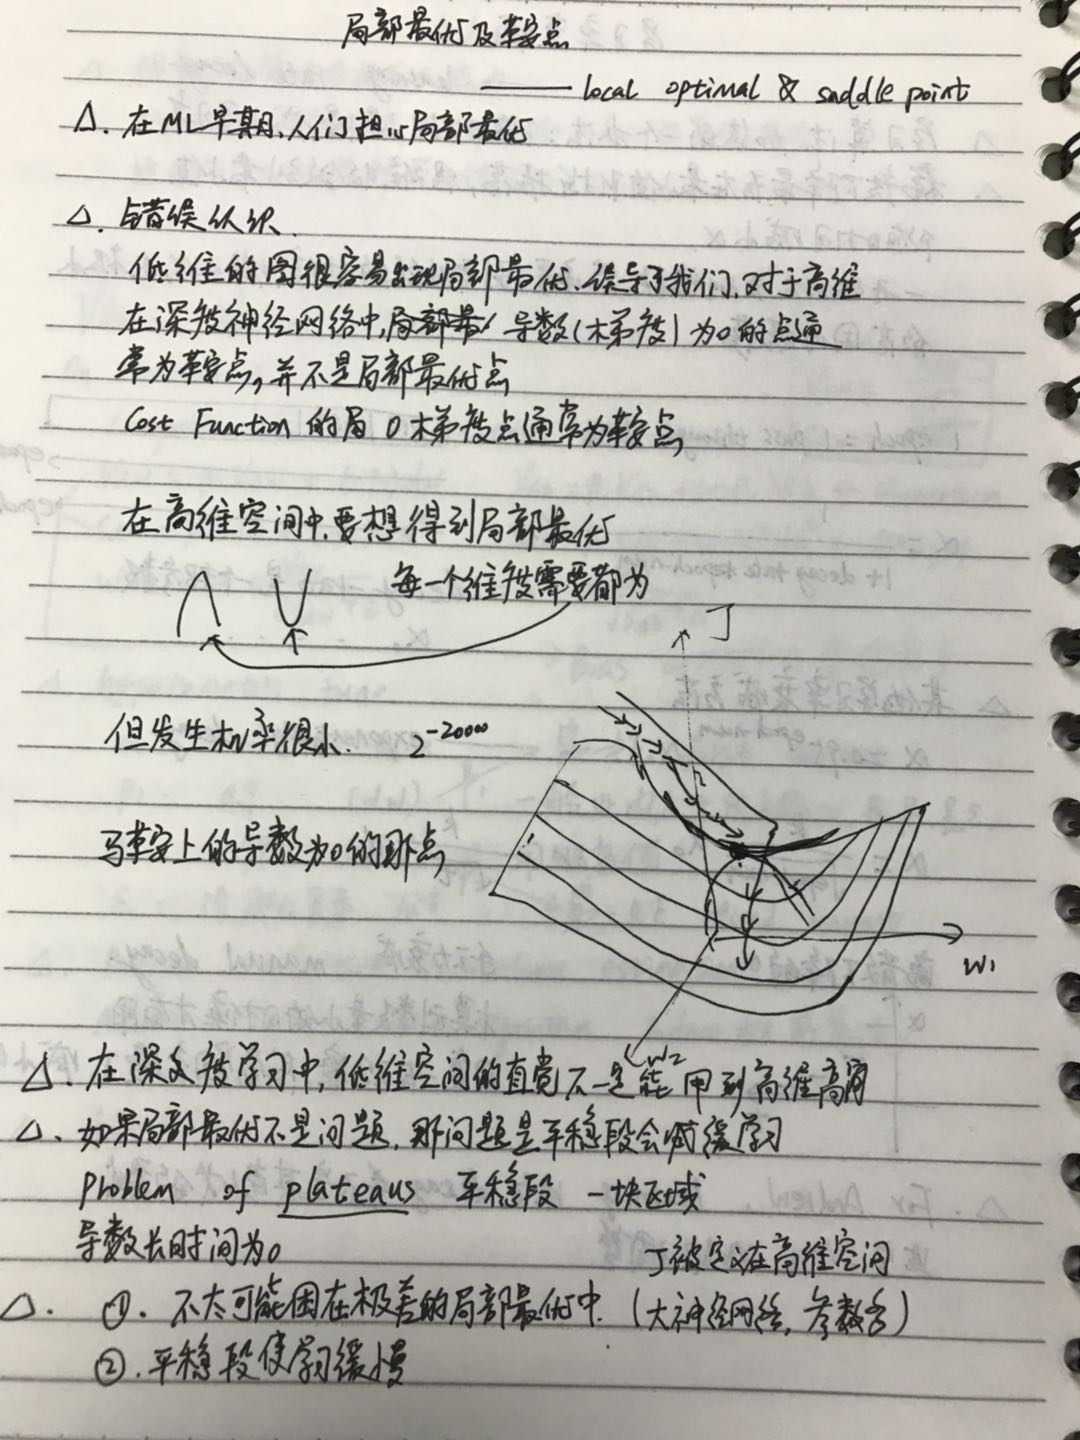 局部最优及鞍点
—— local optimal & saddle point
△. 在ML早期,人们担心局部最优
△. 错误认识.
低维的图很容易出现局部最优,误导了我们,对于高维
在深度神经网络中,局部最 导数(梯度)为0的点通
常为鞍点,并不是局部最优点
Cost Function 的局 0梯度点通常为鞍点
在高维空间中,要想得到局部最优
每一个维度需要都为
J
但发生机率很小. 2^-20000
马鞍上的导数为0的那点
W1
W2
△. 在深度学习中,低维空间的直觉不一定能用到高维高
△. 如果局部最优不是问题,那问题是平稳段会减缓学习
problem of plateaus 平稳段 一块区域
导数长时间为0
J被定义在高维空间
△. ①. 不太可能困在极差的局部最优中. (大神经网络,参数多)
②. 平稳段使学习缓慢